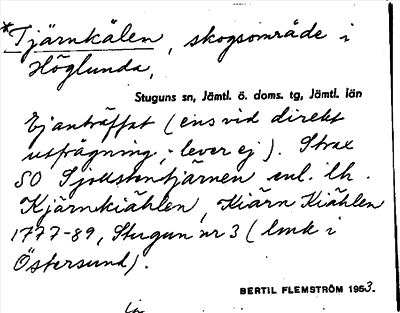 *Tjärnkälen, skogsområde i
Höglunda,
Stuguns sn, Jämtl. ö. doms. tg, Jämtl. län
Ej anträffat (ens vid direkt
utfrågning, lever ej). Strax
SO Sjokstentjärnen enl. lh.
Kjärnkiählen, Kiärn Kiählen
1777-89, Stugun nr 3 (lmk i
Östersund).
BERTIL FLEMSTRÖM 1953.